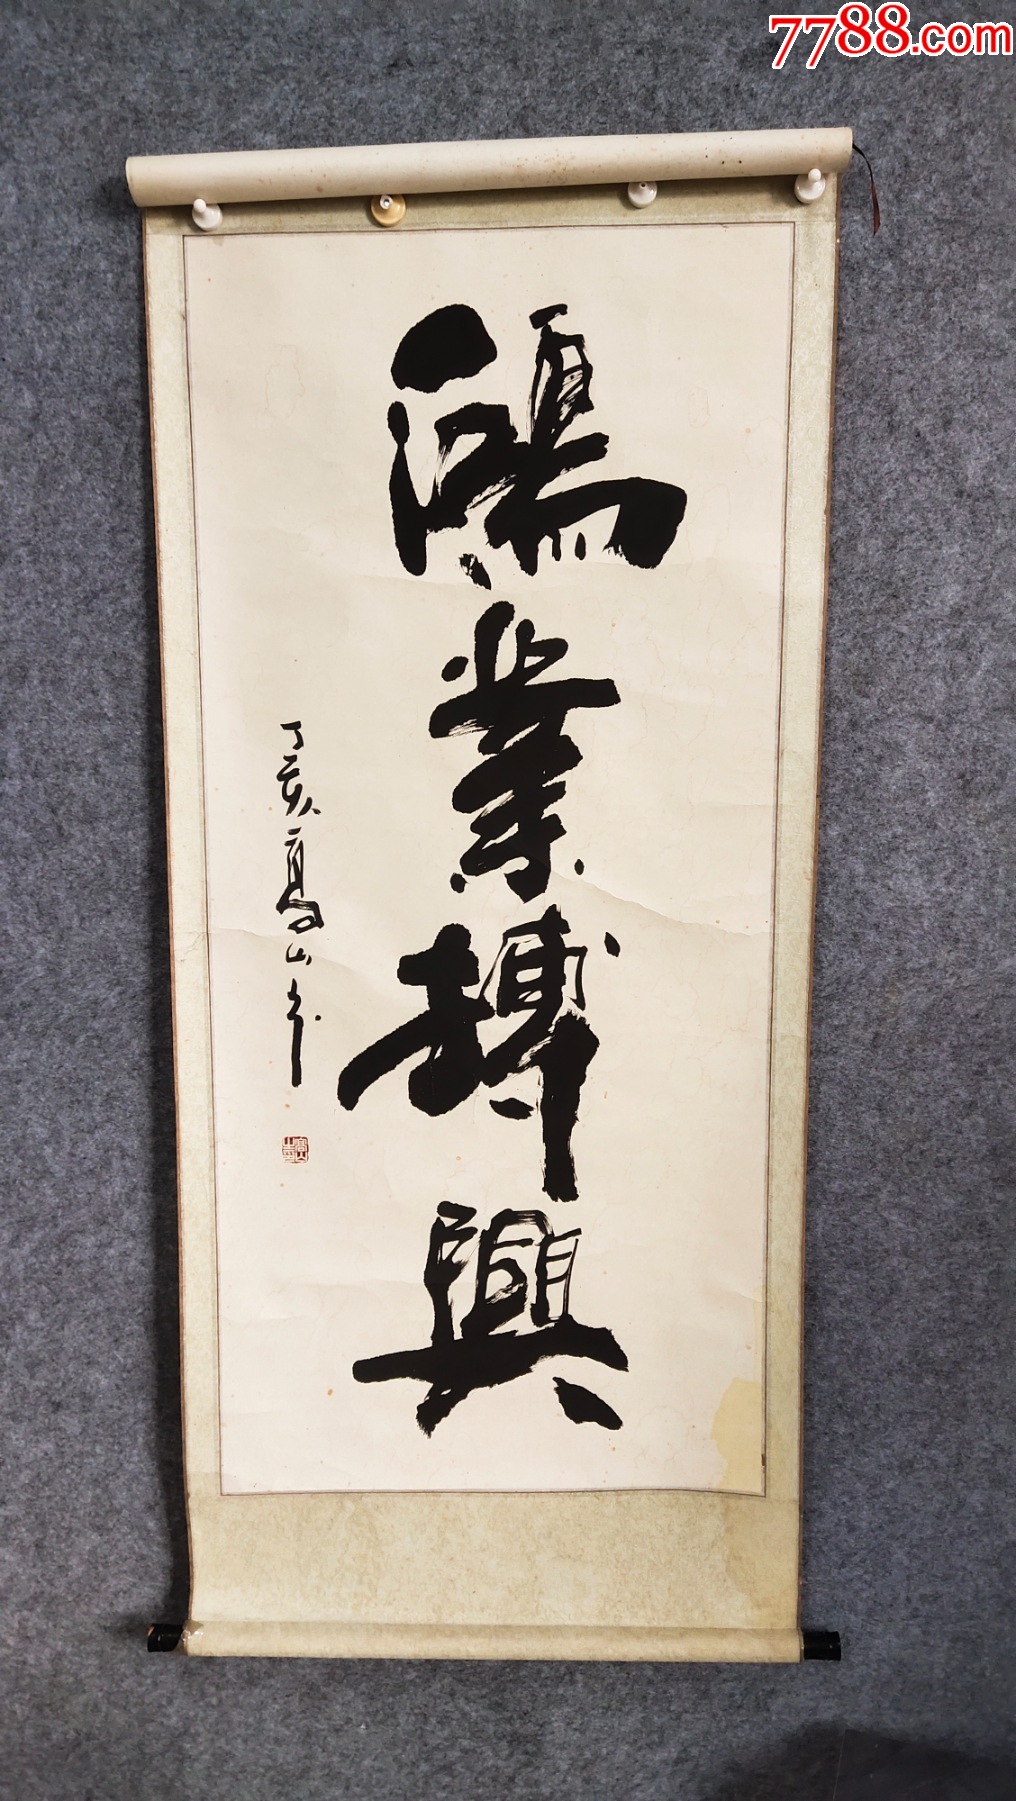 7788.com
鴻業搏興
丁亥高山书